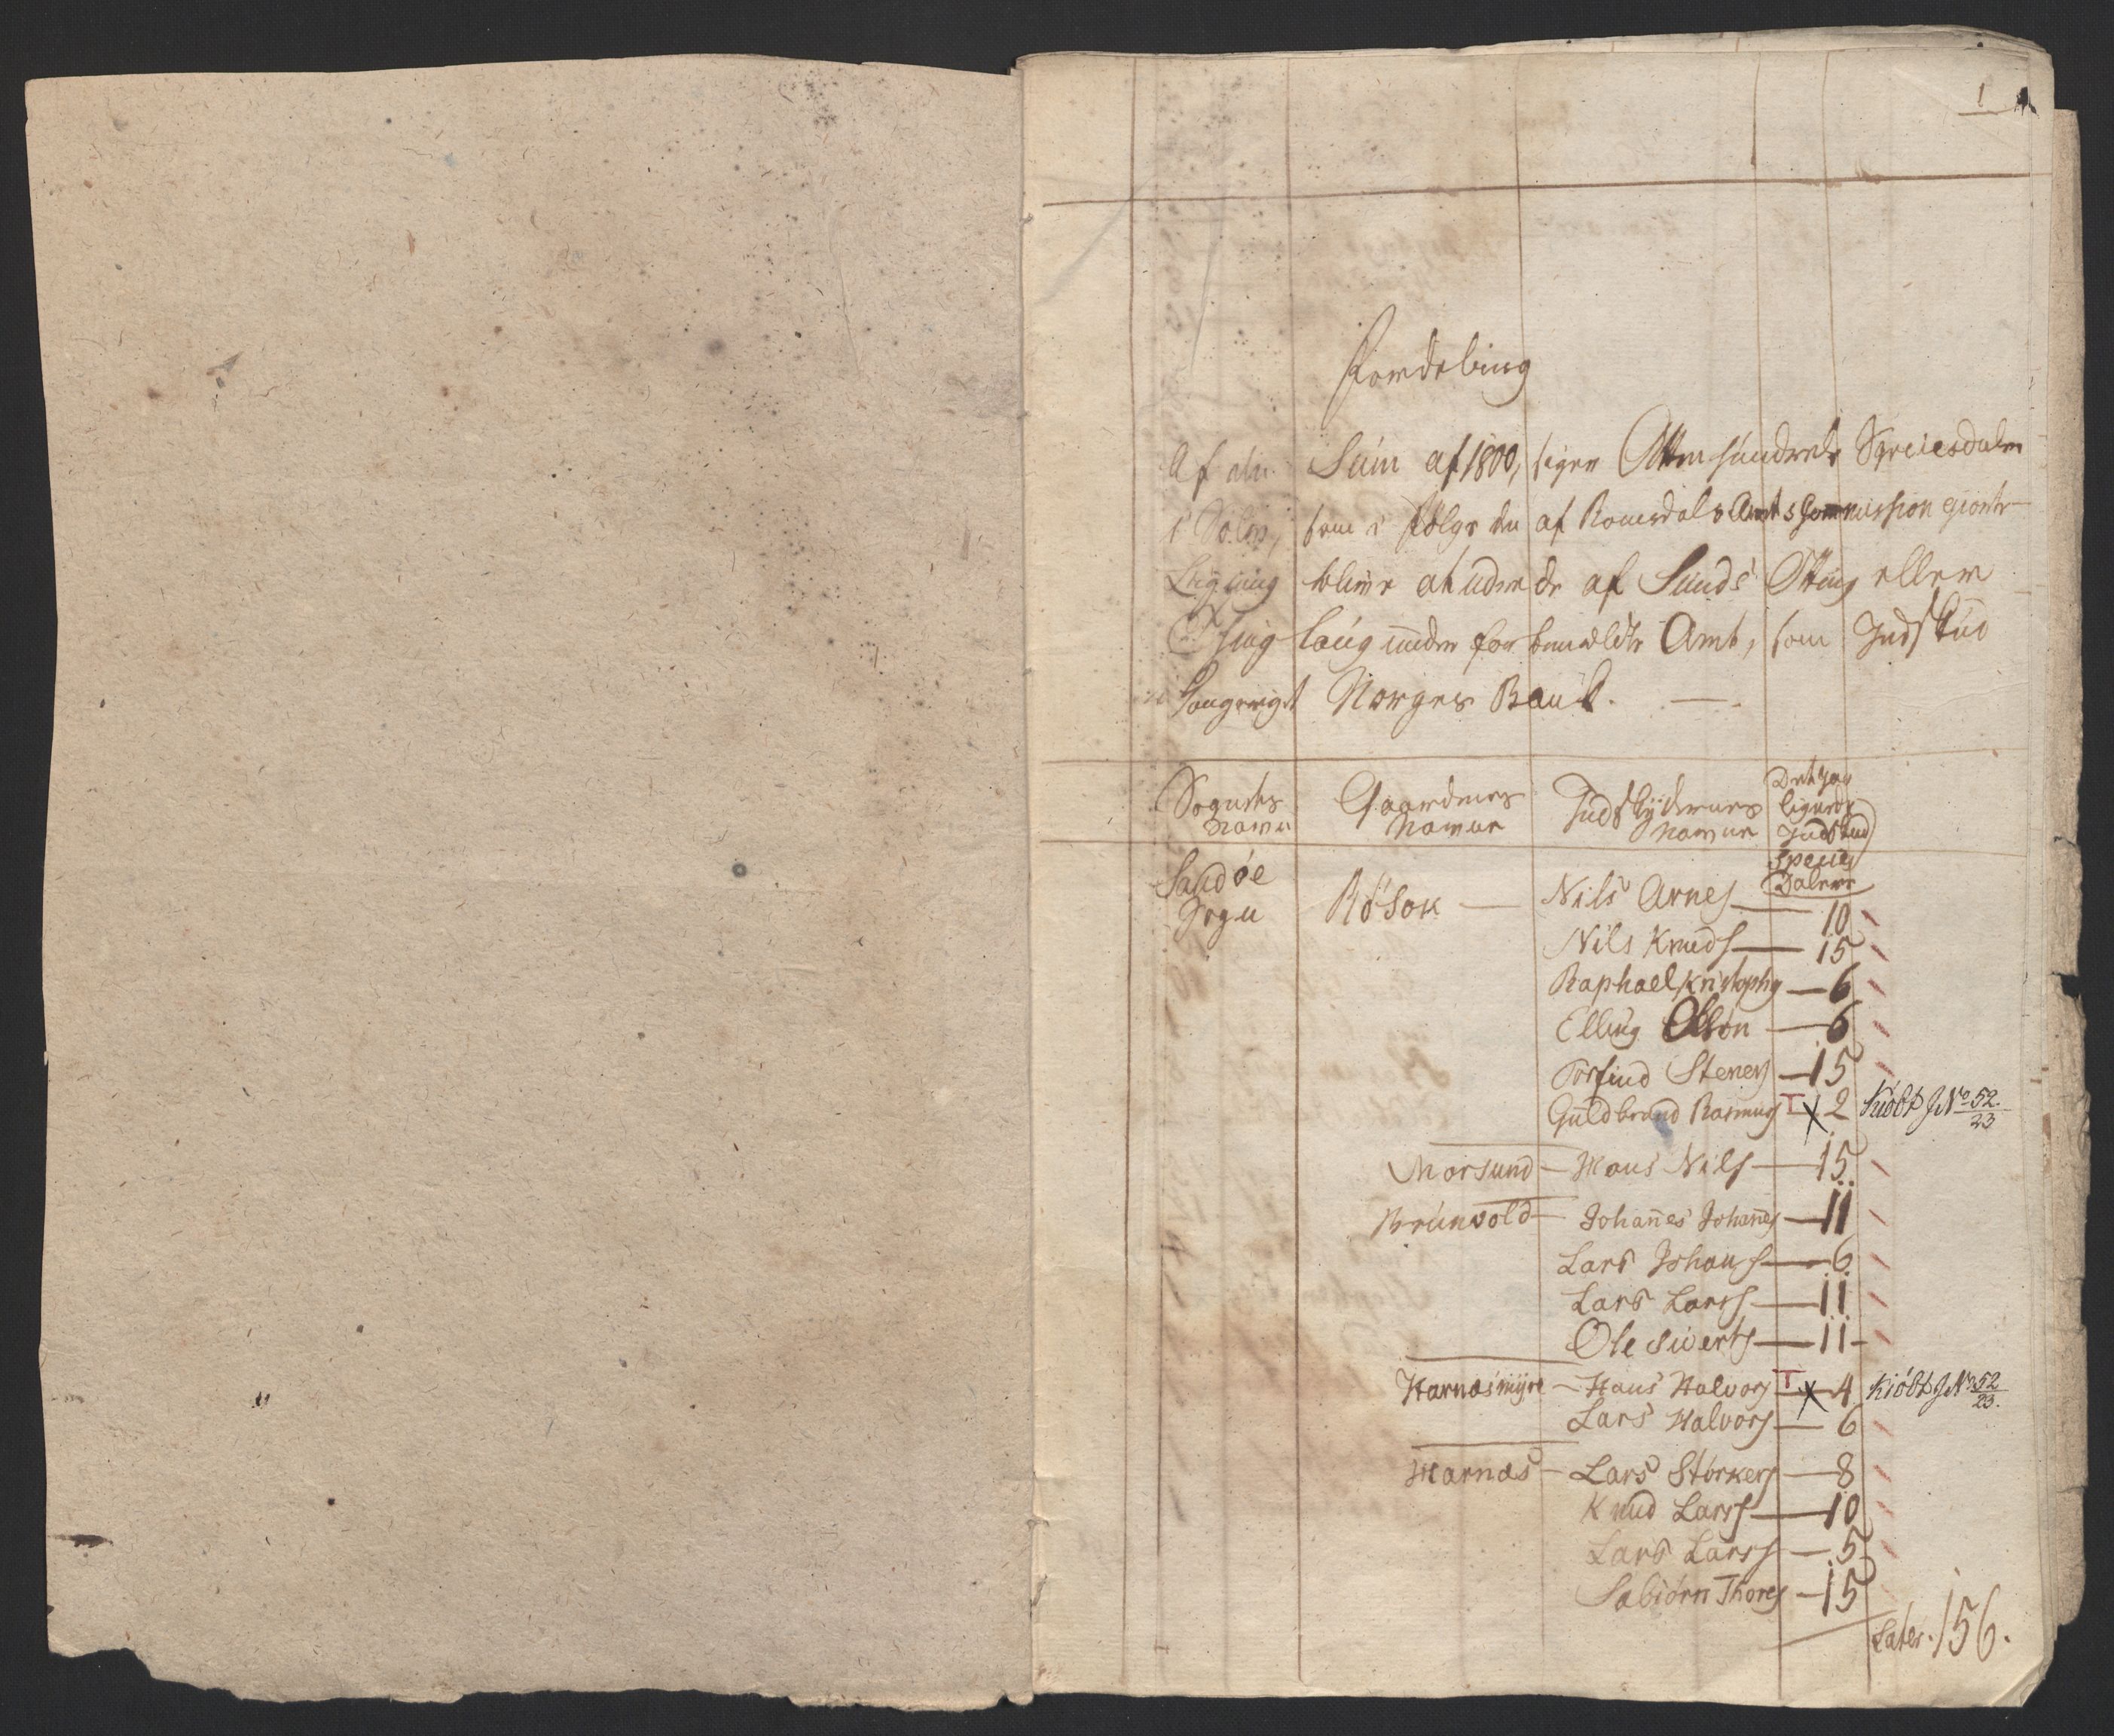 1
Fordeling
Af den Sum af 1800, siger Atten hundrede Speciesdaler
i Sølv, som i følge den af Romsdals Amts Commission giorte
Ligning bliver at udrede af Sunds Otting eller
Thinglaug under forbemeldte Amt, som Indskud
i Kongeriget Norges Bank.
Sognets Navn Gaardenes Navne Indskydernes Navne Det paalignede Indskud
Species Daler
Sandøe Sogn Røsok Nils Arnes 10
Nils Knuds 15
Raphael Kristophs 6
Elling Olson 6
Torfind Steners 15
Guldbrand Rasmus T x 2 Kiøbt JNo 52/23
Morsund Hans Nils 15
Brúnvold Johan̄es Johan̄es 11
Lars Johans 6
Lars Larss 11
Ole Siverts 11
Harnæsmyre Hans Halvors T x 4 Kiøbt JNo 52/23.
Lars Halvors 6
Harnæs Lars Størkers 8
Knud Larss 10
Lars Larss 5
Sabiørn Thores 15
Later. 156.